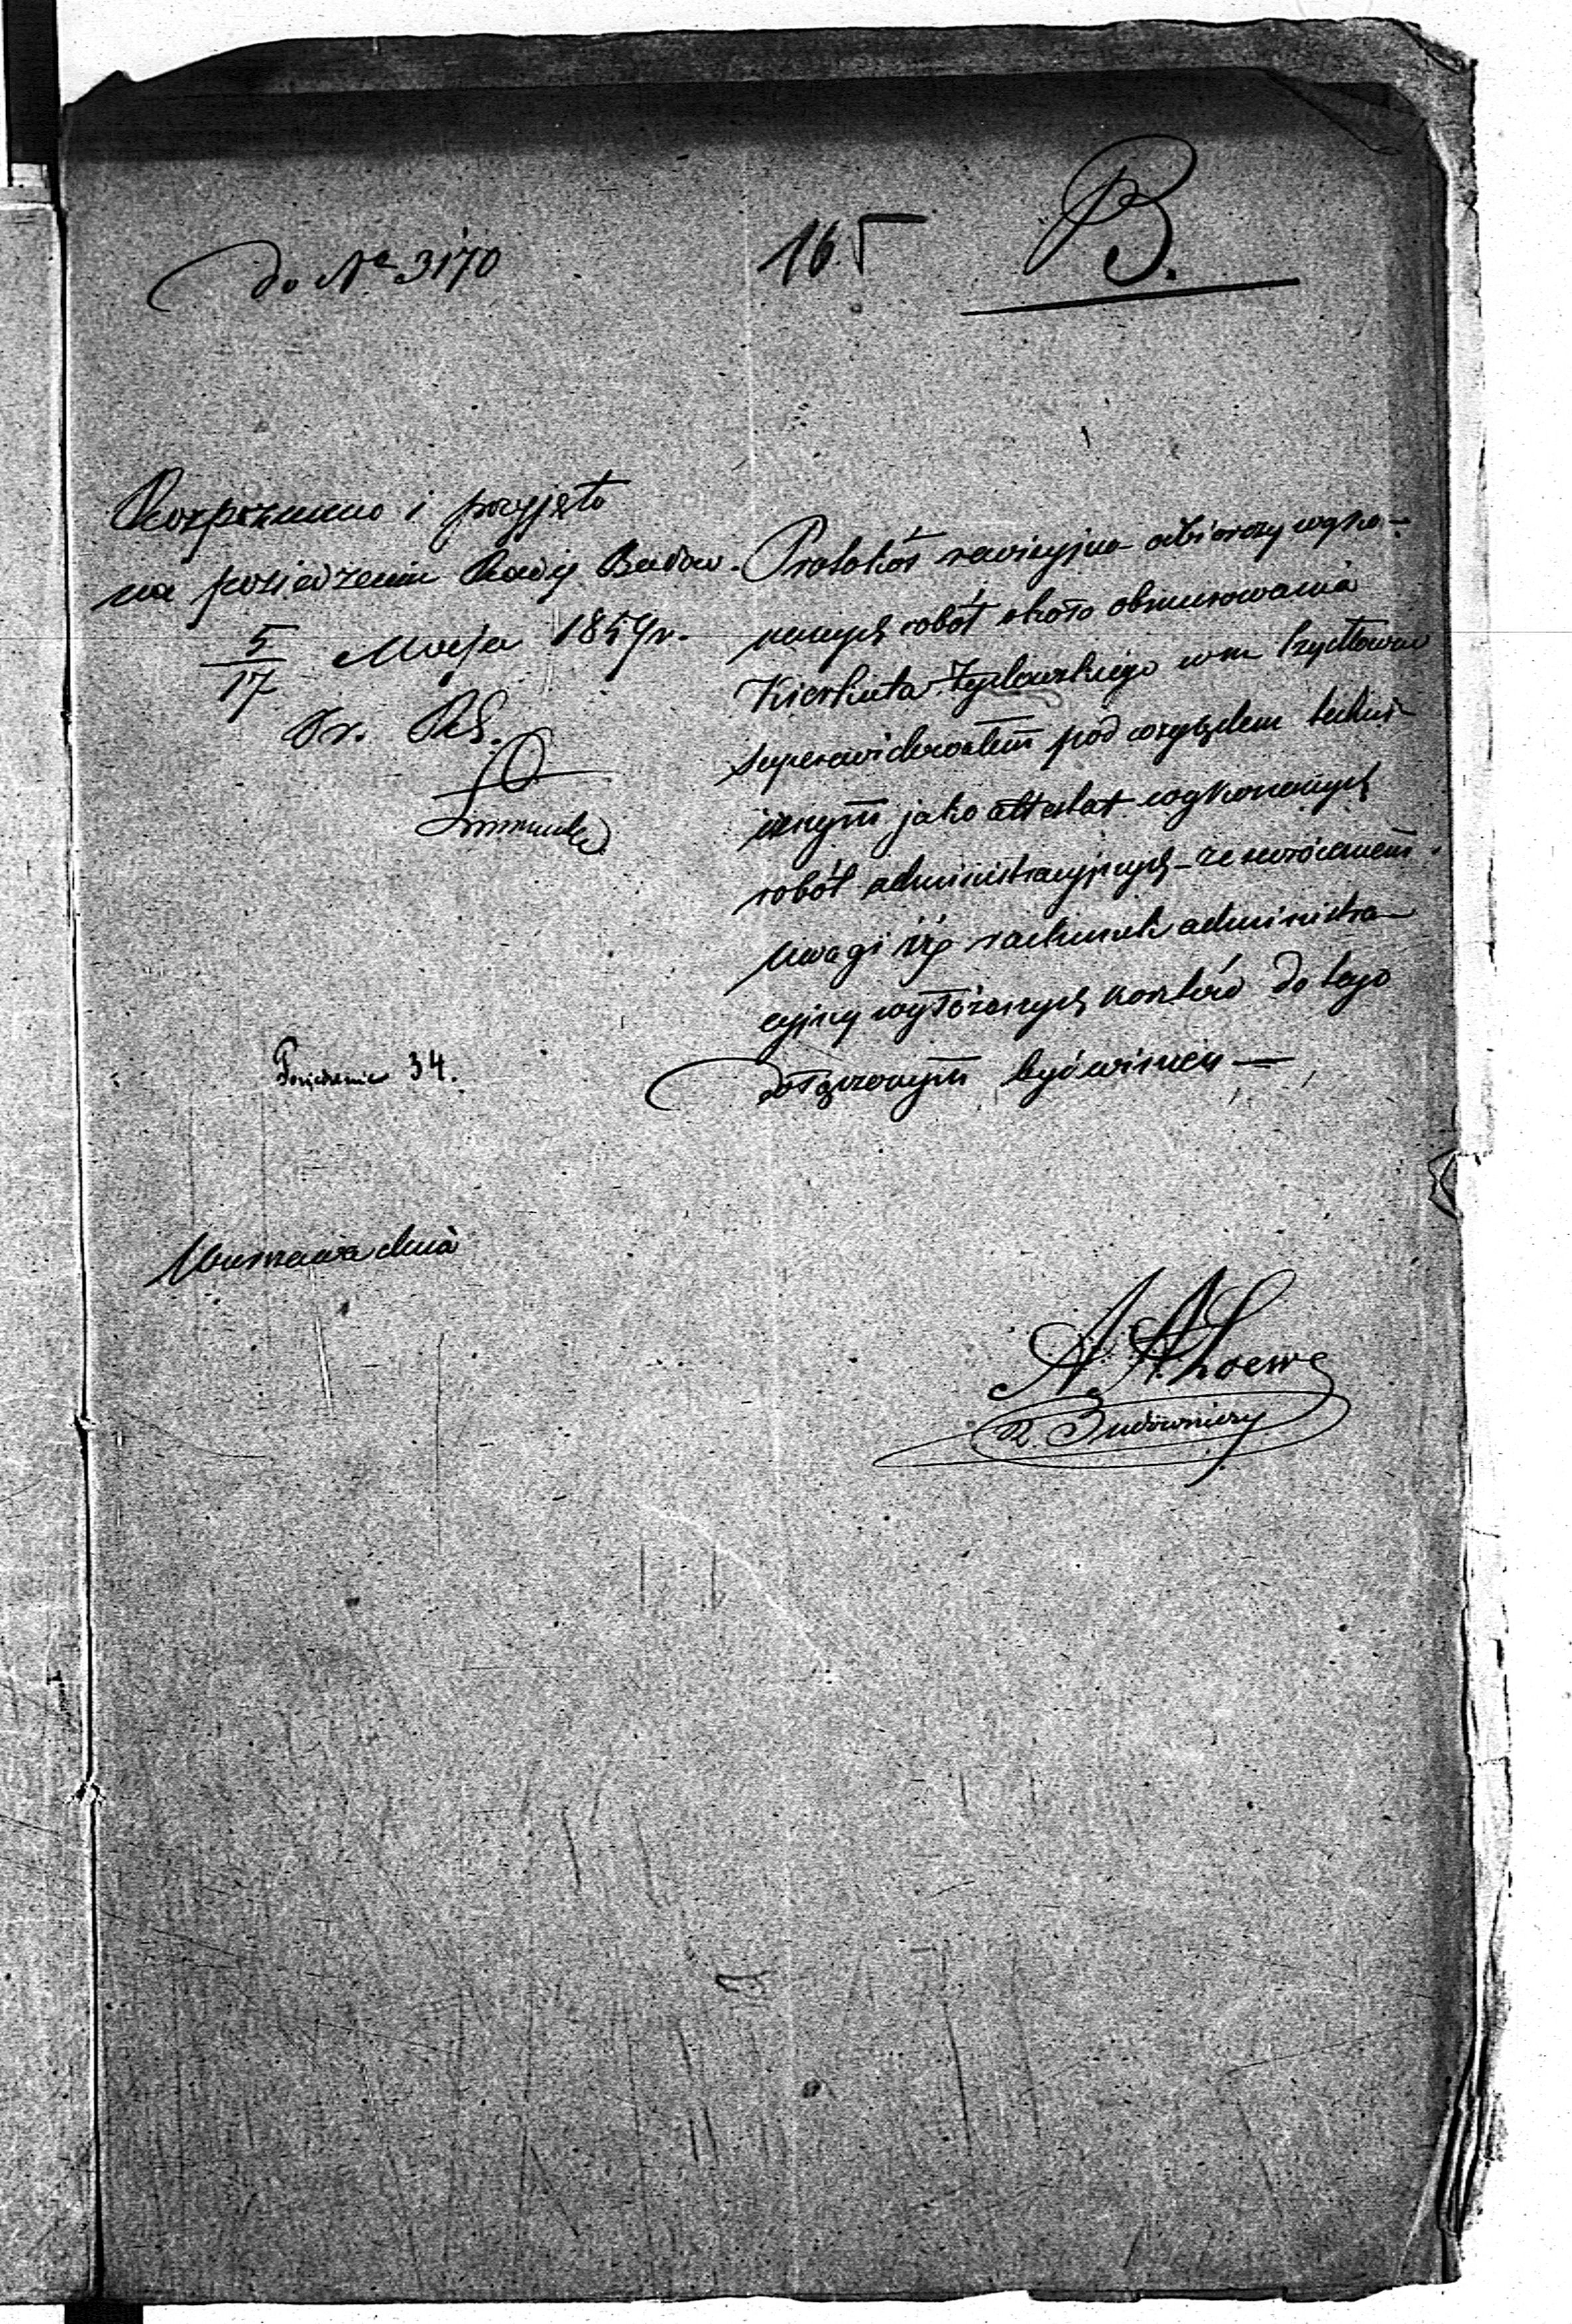 do Nº 3170
165
B.
Rozpoznano i przyjęto
na posiedzeniu Rady Budow.
5/17 Maja 1859 r.
Posiedzenie 34.
Protokół rewizyjno-odbiorczy wyko-
nanych robót około obmurowania
Kierkuta Żydowskiego w m.
superrewidowałem pod względem techni-
cznym jako attestat wykonanych
robót administracyjnych – ze zwróceniem
uwagi iż rachunek administra-
cyjny wyłożonych kosztów do tego
dołączonym być winien —
Warszawa dnia
A. A. Loewe
R. Budowniczy